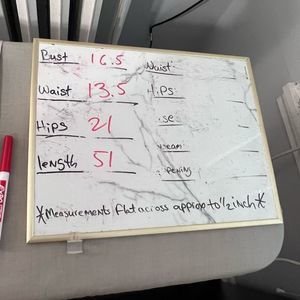 Bust 16.5 Waist
Waist 13.5 Hips
Hips 21 ise
length 51
pening
*Measurements flat across approx to 1/2 inch*